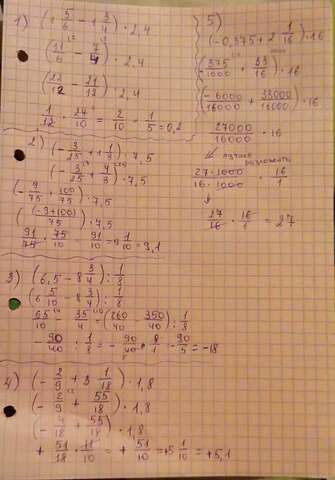 1) (1 5/6 - 1 3/4) · 2,4
(11/6 - 7/4) · 2,4
(22/12 - 21/12) · 2,4
1/12 · 24/10 = 2/10 = 1/5 = 0,2
2) (- 3/25 + 1 1/3) · 7,5
(- 3/25 + 4/3) · 7,5
(- 9/75 + 100/75) · 7,5
((-9+100)/75) · 7,5
91/75 · 75/10 = 91/10 = 9 1/10 = 9,1
3) (6,5 - 8 3/4) : 1/8
(6 5/10 - 8 3/4) : 1/8
65/10 - 35/4 = (260/40 - 350/40) : 1/8
- 90/40 : 1/8 = - 90/40 · 8/1 = - 90/5 = -18
4) (- 2/9 + 3 1/18) · 1,8
(- 2/9 + 55/18) · 1,8
(- 4/18 + 55/18) · 1,8
+ 51/18 · 18/10 = + 51/10 = +5 1/10 = +5,1
5)
(-0,375 + 2 1/16) · 16
(- 375/1000 + 33/16) · 16
(- 6000/16000 + 33000/16000) · 16
27000/16000 · 16
лучше разложить
27·1000/16·1000 · 16/1
27/16 · 16/1 = 27